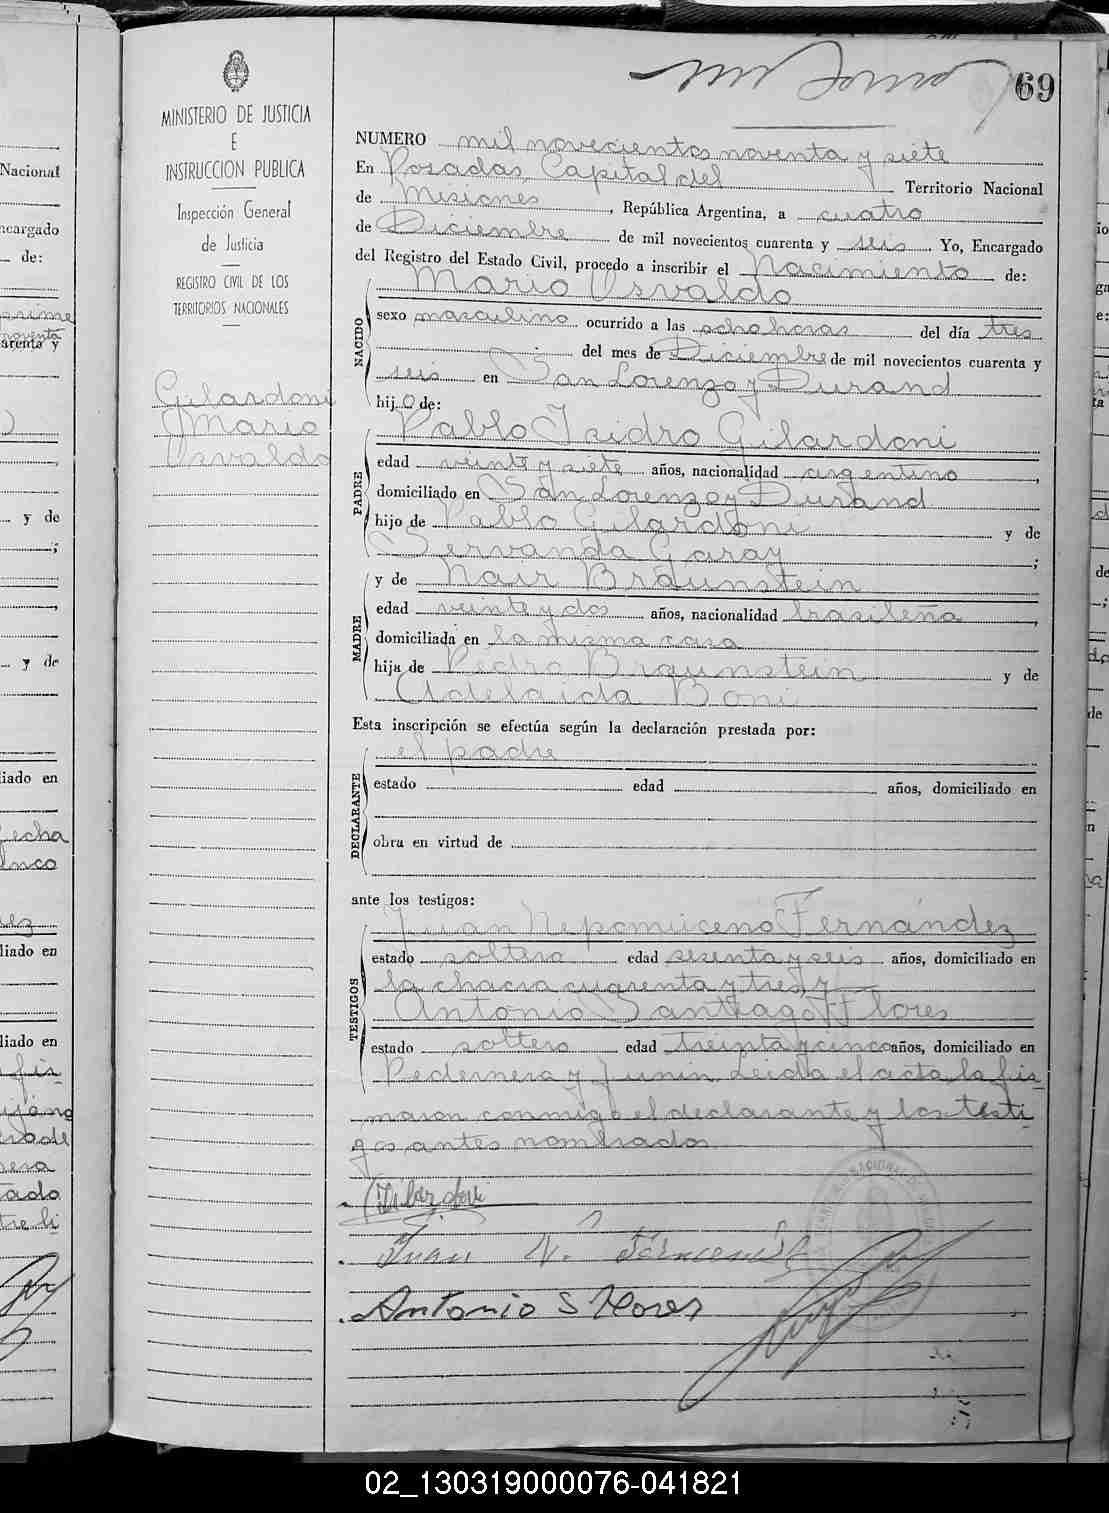 69
MINISTERIO DE JUSTICIA
E
INSTRUCCION PUBLICA
Inspección General
de Justicia
REGISTRO CIVIL DE LOS
TERRITORIOS NACIONALES
Gilardoni
Mario
Osvaldo
NUMERO mil novecientos noventa y siete
En Posadas, Capital del Territorio Nacional
de Misiones, República Argentina, a cuatro
de Diciembre de mil novecientos cuarenta y seis. Yo, Encargado
del Registro del Estado Civil, procedo a inscribir el Nacimiento de:
Mario Osvaldo
NACIDO
sexo masculino ocurrido a las ocho horas del día tres
del mes de Diciembre de mil novecientos cuarenta y
seis en San Lorenzo y Durand
hijo de:
Pablo Isidro Gilardoni
PADRE
edad veinte y siete años, nacionalidad argentino,
domiciliado en San Lorenzo y Durand
hijo de Pablo Gilardoni y de
Servanda Garay;
y de Nair Braunstein
MADRE
edad veinte y dos años, nacionalidad brasileña,
domiciliada en la misma casa
hija de Pedro Braunstein y de
Adelaida Boni
Esta inscripción se efectúa según la declaración prestada por:
el padre
DECLARANTE
estado edad años, domiciliado en
obra en virtud de
ante los testigos:
Juan Nepomuceno Fernández
TESTIGOS
estado soltero edad sesenta y seis años, domiciliado en
la chacra cuarenta y tres, y
Antonio Santiago Flores
estado soltero edad treinta y cinco años, domiciliado en
Pedernera y Junin. Leida el acta la fir-
maron conmigo el declarante y los testi-
gos antes nombrados
Gilardoni
Juan N. Fernandez
Antonio S Flores
02_130319000076-041821